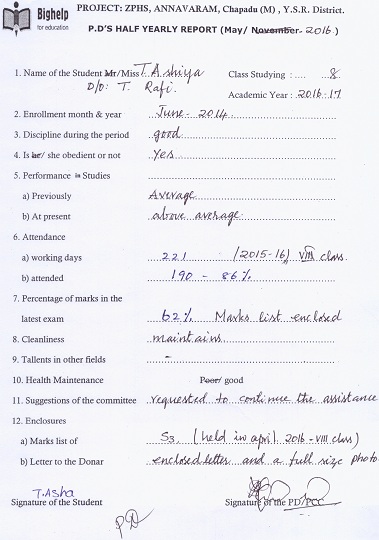 Bighelp
for education
PROJECT: ZPHS, ANNAVARAM, Chapadu (M) , Y.S.R. District.
P.D'S HALF YEARLY REPORT (May/ November- 2016.)
1. Name of the Student Mr/Miss T. Ashiya Class Studying : .... 8
D/o: T. Rafi. Academic Year : 2016-17
2. Enrollment month & year June - 2014
3. Discipline during the period good
4. Is he/ she obedient or not Yes
5. Performance in Studies
a) Previously Average
b) At present above average.
6. Attendance
a) working days 221 (2015-16) VIII class.
b) attended 190 - 86%
7. Percentage of marks in the
latest exam 62% Marks list enclosed
8. Cleanliness maintains
9. Tallents in other fields -
10. Health Maintenance Poor/ good
11. Suggestions of the committee requested to continue the assistance
12. Enclosures
a) Marks list of S3. (held in april 2016 - VIII class)
b) Letter to the Donar enclosed letter and a full size photo
T. Asha
Signature of the Student Signature of the PD/PCC
PD